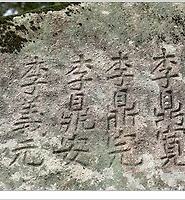 李鼎寬
李鼎完
李鼎安
李義元